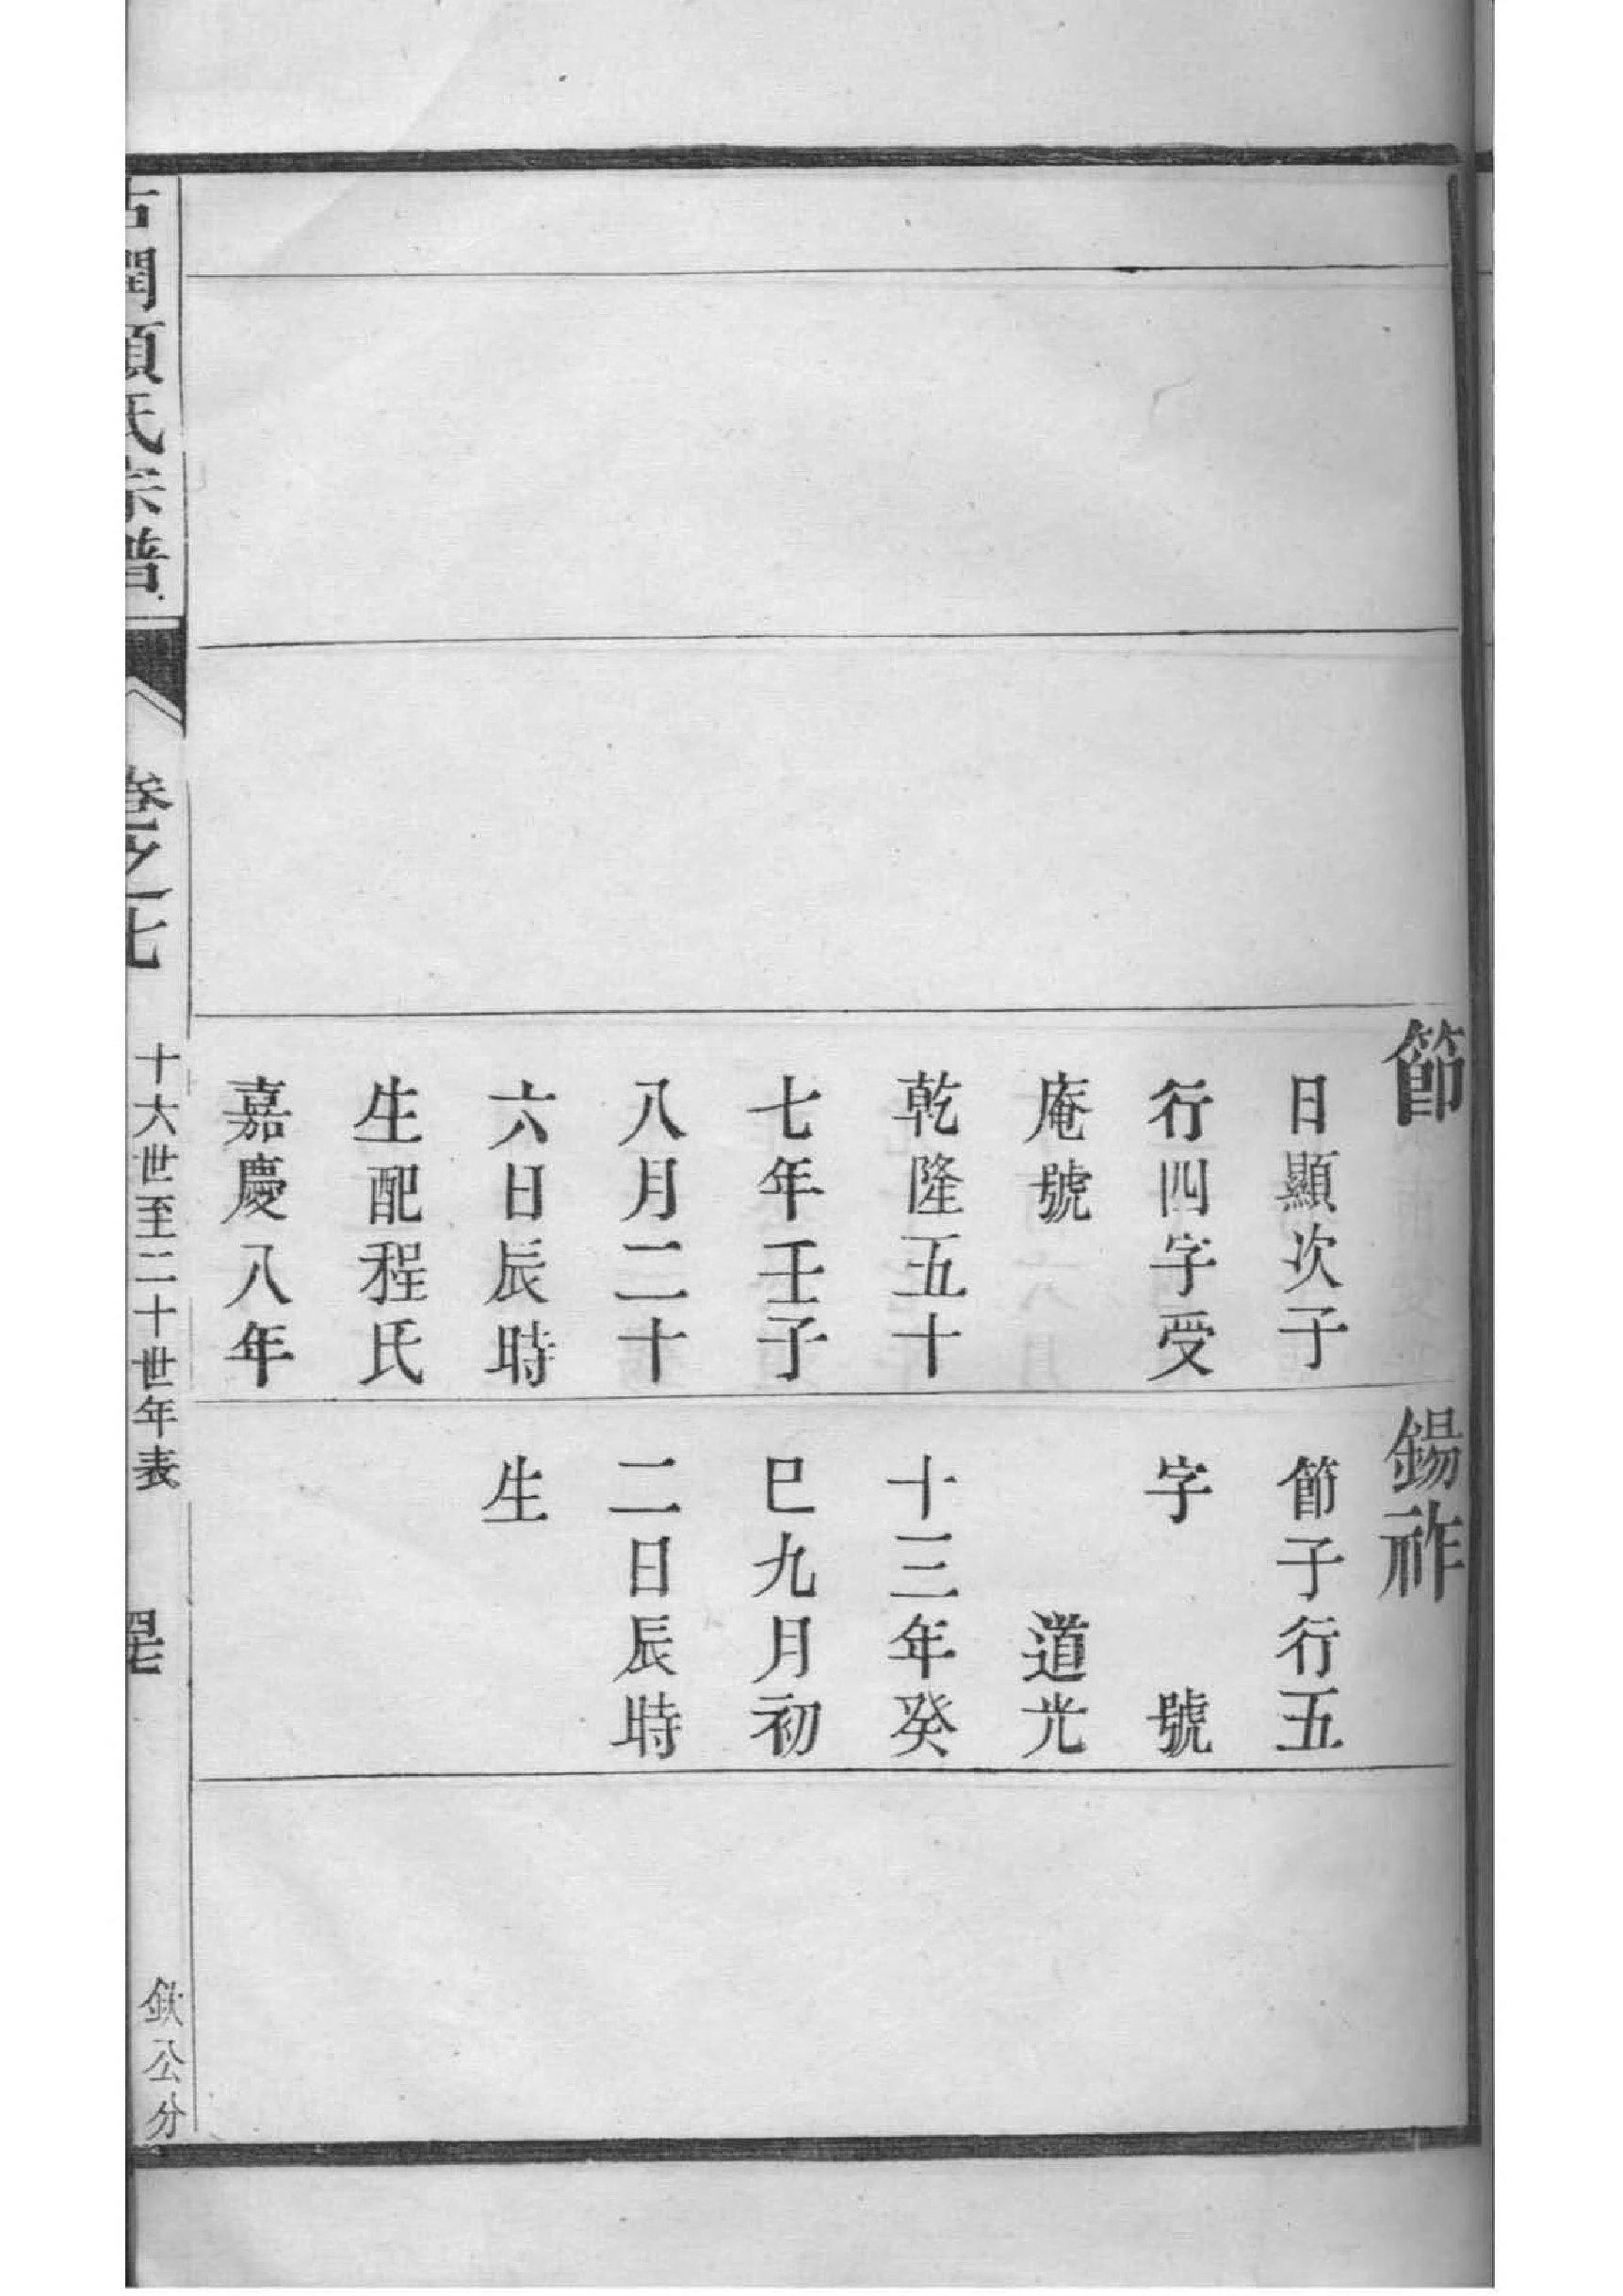 節
日顯次子
行四字受
庵號
乾隆五十
七年壬子
八月二十
六日辰時
生配程氏
嘉慶八年
鍚祚
節子行五
字　號
道光
十三年癸
巳九月初
二日辰時
生
氏宗譜
卷之七
十六世至二十世年表
欽公分